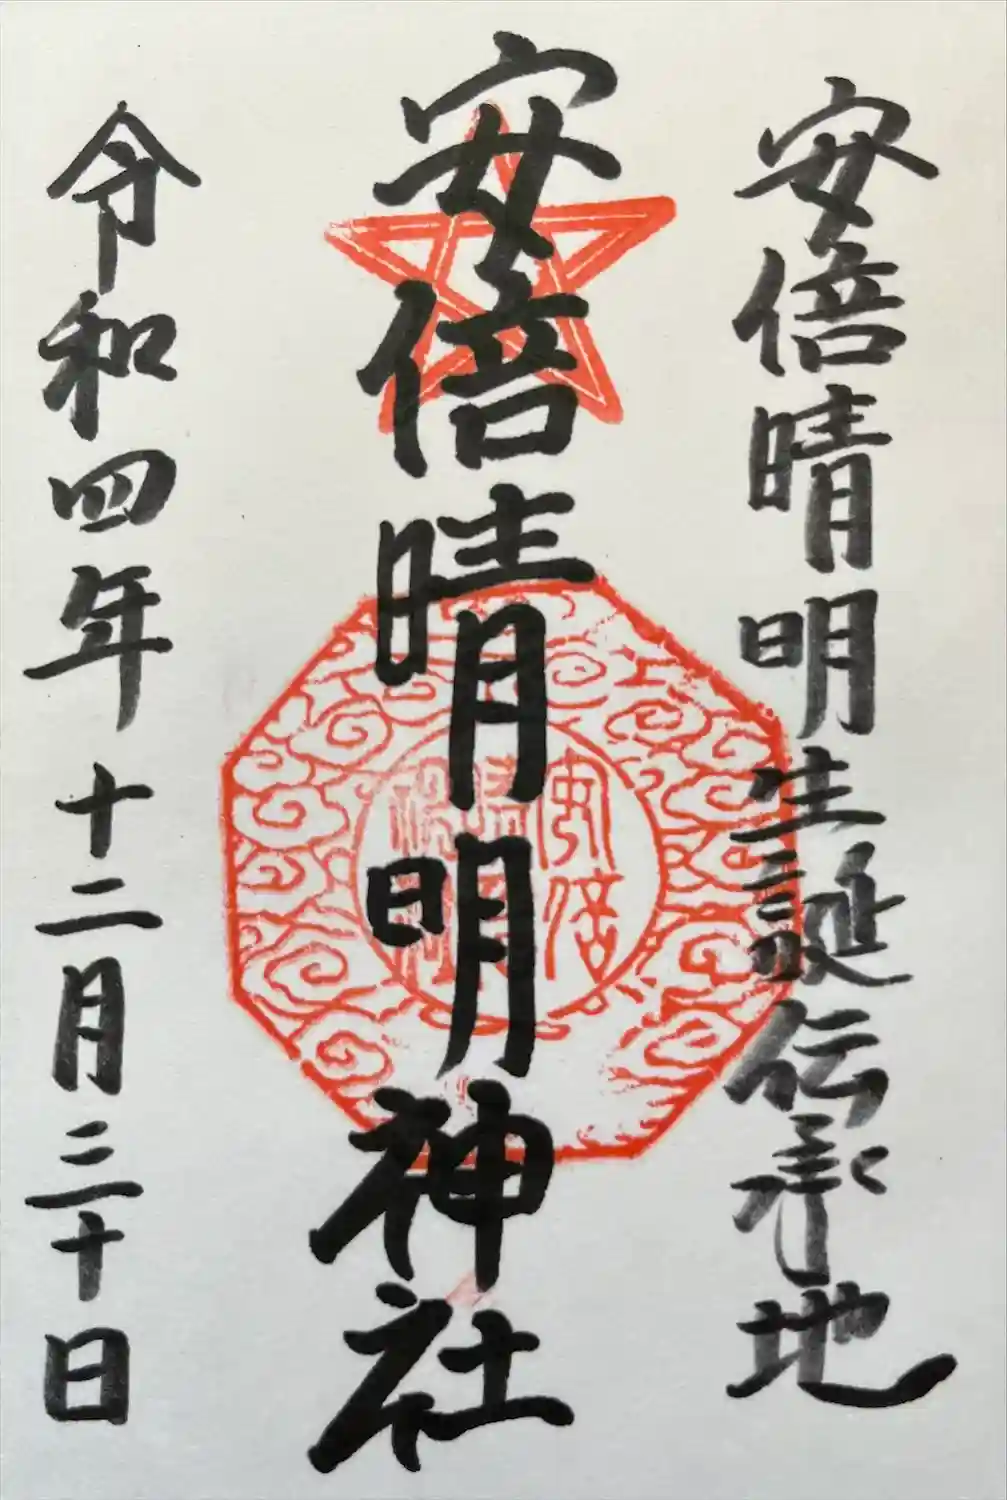 安倍晴明生誕伝承地
安倍晴明神社
令和四年十二月三十日
安倍